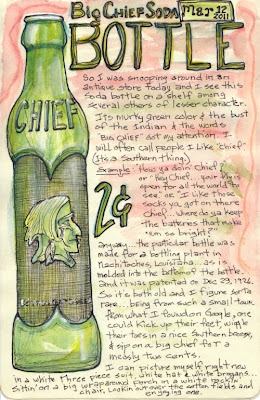 Big Chief Soda
Mar 12
2011
BOTTLE
So I was snooping around in an
antique store today and I see this
soda bottle on a shelf among
several others of lesser character.
Its murky green color & the bust
of the Indian & the words
"Big Chief" got my attention. I
will often call people I like "chief."
Its a Southern thing.
Example: How ya doin' Chief?
or "Hey Chief, your fly is
open for all the world to
see." or "I like those
socks ya got on there
Chief... where do ya keep
the batteries that make
'em so bright?"
CHIEF
2¢
anyway... the particular bottle was
made for a bottling plant in
Nachitoches, Louisiana... as is
molded into the bottom of the bottle
and it was patented on Dec 29, 1926.
So its both old and I figure sorta
rare... being from such a small town.
From what I found on Google, one
could kick up their feet, wiggle
their toes in a nice Southern breeze,
& sip on a big chief for a
measly two cents.
I can picture myself right now
in a white three piece suit, white hat & white brogans...
sittin' on a big wraparound porch in a white rockin'
chair, lookin' over the cotton fields and
enjoying one.